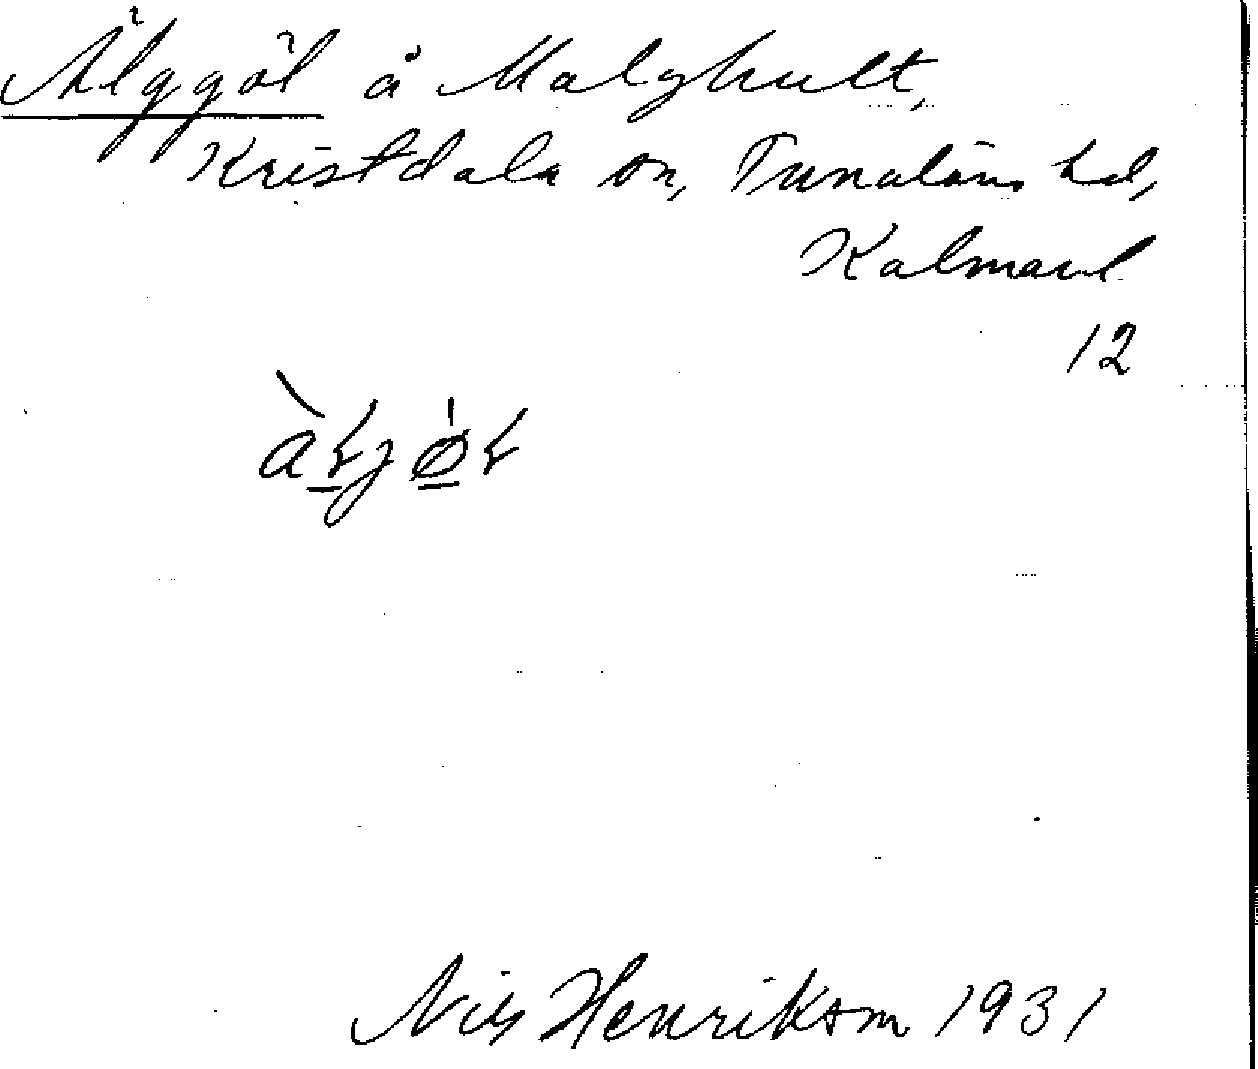 Älggöl å Malghult,
Kristdala sn, Tunaläns hd,
Kalmarl
12
Nils Henrikson 1931